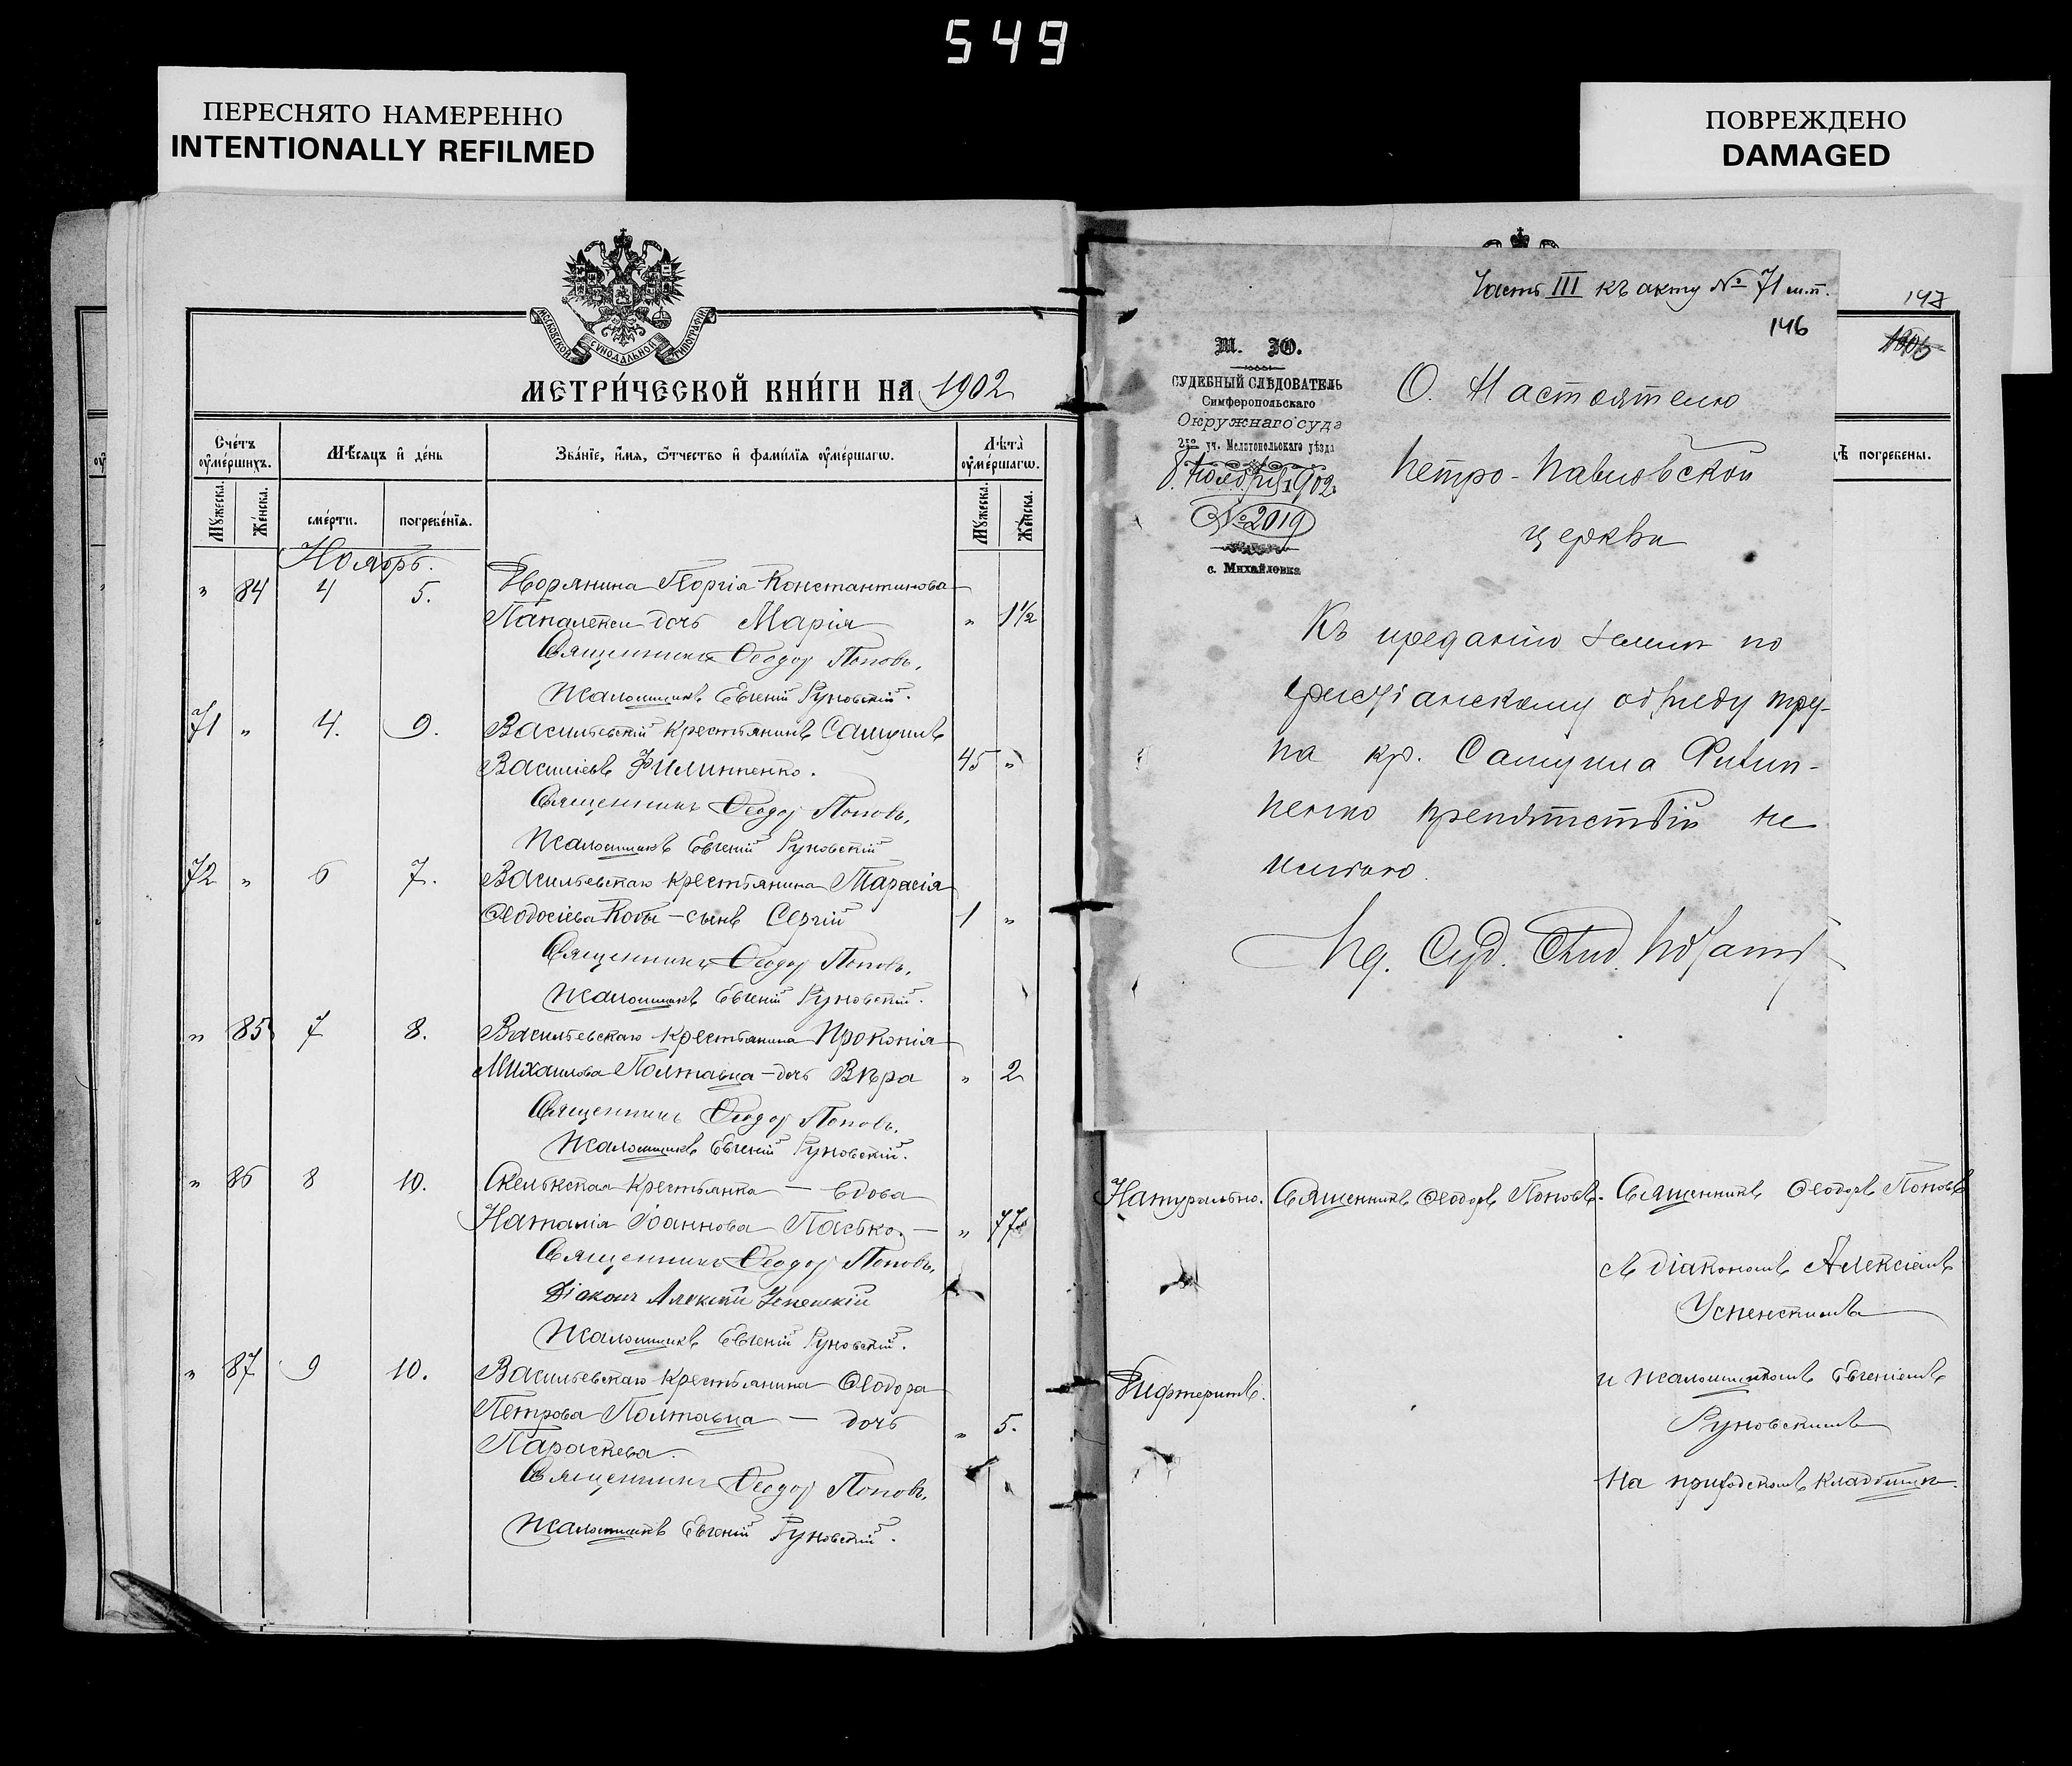 549
ПЕРЕСНЯТО НАМЕРЕННО
INTENTIONALLY REFILMED
ПОВРЕЖДЕНО
DAMAGED
МОСКОВСКОЙ СѴНОДАЛЬНОЙ ТИПОГРАФІИ
МЕТРИ́ЧЕСКОЙ КНИ́ГИ НА 1902
Сче́тъ ᲂу҆ме́ршихъ.
Мѣ́сяцъ и҆ де́нь
Зва́нїе, и҆́мя, ѻ҆́тчество и҆ фами́лїя ᲂу҆ме́ршагѡ.
Лѣ́та ᲂу҆ме́ршагѡ.
Мꙋ́жеска.
Же́нска.
сме́рти.
погребе́нїя.
Мꙋ́жеска.
Же́нска.
Ноябрь.
" 84 4 5. Дворянина Георгія Константинова
дочь Марія " 1½
Священникъ Ѳеодоръ Поповъ.
Псаломщикъ Евгеній Руновскій.
71 " 4. 9. Васильевскій крестьянинъ Самуилъ
Васильевъ Филипненко. 45 "
Священникъ Ѳеодоръ Поповъ.
Псаломщикъ Евгеній Руновскій
72 " 6 7. Васильевскаго крестьянина Тарасія
Ѳеодосіева Кобы – сынъ Сергій 1 "
Священникъ Ѳеодоръ Поповъ.
Псаломщикъ Евгеній Руновскій.
" 85 7 8. Васильевскаго крестьянина Прокопія
Михаилова Полтавца – дочь Вѣра " 2
Священникъ Ѳеодоръ Поповъ.
Псаломщикъ Евгеній Руновскій.
" 86 8 10. Скельская крестьянка – вдова
Наталія Іоаннова Пасько. – " 77
Священникъ Ѳеодоръ Поповъ.
Діаконъ Алексій Успенскій
Псаломщикъ Евгеній Руновскій.
" 87 9 10. Васильевскаго крестьянина Ѳеодора
Петрова Полтавца – дочь " 5.
Параскева.
Священникъ Ѳеодоръ Поповъ.
Псаломщикъ Евгеній Руновскій.
Часть III къ акту № 71 м.п.
146
147
М. Ю.
СУДЕБНЫЙ СЛѢДОВАТЕЛЬ
Симферопольскаго
Окружнаго суда
2го уч. Мелитопольскаго уѣзда
8 Ноября 1902
№ 2019
с. Михайловка
О. Настоятелю
Петро-Павловской
церкви
Къ преданію землѣ по
христіанскому обряду тру-
па кр. Самуила Филип-
пенко препятствій не
имѣю.
Суд. Слѣд.
погребены.
Натурально. Священникъ Ѳеодоръ Поповъ. Священникъ Ѳеодоръ Поповъ
съ діакономъ Алексіемъ
Успенскимъ
Дифтеритъ.
и псаломщикомъ Евгеніемъ
Руновскимъ
На приходскомъ кладбищѣ.